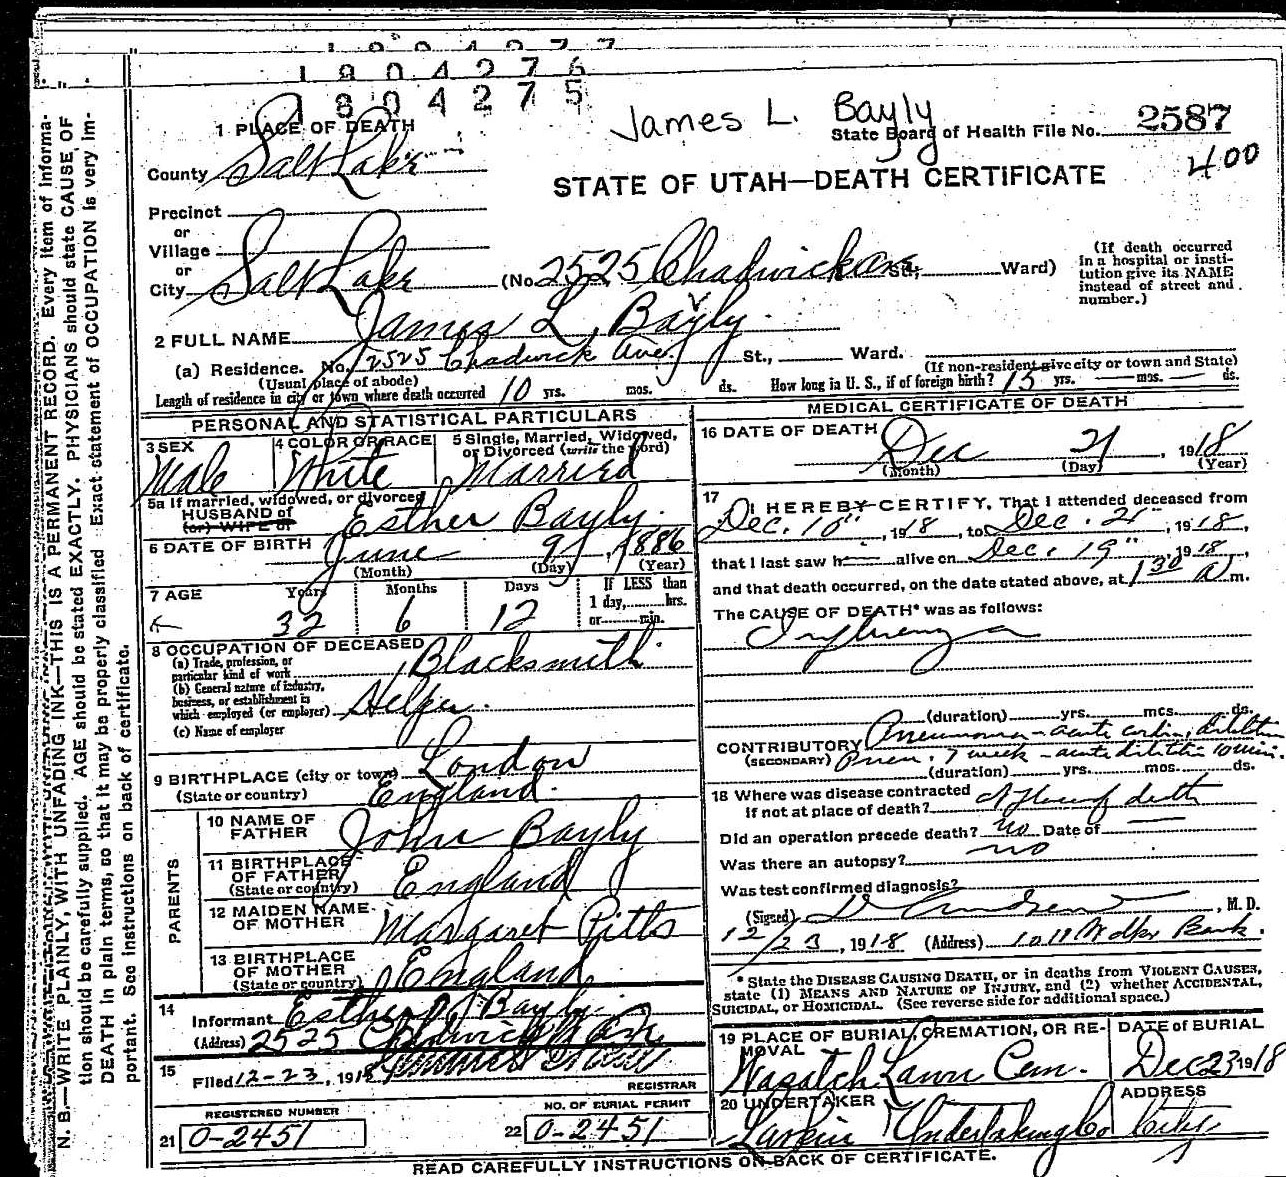 1804276
1804275
James L. Bayly
State Board of Health File No. 2587
400
STATE OF UTAH—DEATH CERTIFICATE
1 PLACE OF DEATH
County Salt Lake
Precinct
or
Village
or
City Salt Lake (No. 2525 Chadwick Ave St; Ward)
(If death occurred in a hospital or institution give its NAME instead of street and number.)
2 FULL NAME James L. Bayly
(a) Residence. No. 2525 Chadwick Ave. St., Ward.
(Usual place of abode)
(If non-resident give city or town and State)
Length of residence in city or town where death occurred 10 yrs. mos. ds. How long in U. S., if of foreign birth? 15 yrs. — mos. — ds.
PERSONAL AND STATISTICAL PARTICULARS
3 SEX Male
4 COLOR OR RACE White
5 Single, Married, Widowed, or Divorced (write the word) Married
5a If married, widowed, or divorced
HUSBAND of
(or) WIFE of
Esther Bayly.
6 DATE OF BIRTH June 9, 1886
(Month) (Day) (Year)
7 AGE Years 32 Months 6 Days 12 If LESS than 1 day, hrs. or min.
8 OCCUPATION OF DECEASED
(a) Trade, profession, or particular kind of work Blacksmith
(b) General nature of industry, business, or establishment in which employed (or employer) Helper.
(c) Name of employer
9 BIRTHPLACE (city or town) London
(State or country) England.
PARENTS
10 NAME OF FATHER John Bayly
11 BIRTHPLACE OF FATHER (State or country) England
12 MAIDEN NAME OF MOTHER Margaret Pitts
13 BIRTHPLACE OF MOTHER (State or country) England
14 Informant Esther Bayly.
(Address) 2525 Chadwick Ave
15 Filed 12-23, 1918
REGISTRAR
REGISTERED NUMBER
21 0-2451
NO. OF BURIAL PERMIT
22 0-2451
MEDICAL CERTIFICATE OF DEATH
16 DATE OF DEATH Dec 21, 1918
(Month) (Day) (Year)
17 I HEREBY CERTIFY, That I attended deceased from
Dec. 10", 1918, to Dec. 21", 1918,
that I last saw h alive on Dec. 19", 1918,
and that death occurred, on the date stated above, at 1 30 a m.
The CAUSE OF DEATH* was as follows:
Influenza
(duration) yrs. mos. ds.
CONTRIBUTORY Pneumonia - acute
(SECONDARY) Pneu. 1 week - acute
(duration) yrs. mos. ds.
18 Where was disease contracted
if not at place of death? death
Did an operation precede death? no Date of
Was there an autopsy? no
Was test confirmed diagnosis?
(Signed) , M. D.
12/23, 1918 (Address) Bank.
* State the DISEASE CAUSING DEATH, or in deaths from VIOLENT CAUSES, state (1) MEANS AND NATURE OF INJURY, and (2) whether ACCIDENTAL, SUICIDAL, or HOMICIDAL. (See reverse side for additional space.)
19 PLACE OF BURIAL, CREMATION, OR REMOVAL Wasatch Lawn Cem.
DATE of BURIAL Dec 23 1918
20 UNDERTAKER Larkin Undertaking Co
ADDRESS City
READ CAREFULLY INSTRUCTIONS ON BACK OF CERTIFICATE.
N. B.—WRITE PLAINLY, WITH UNFADING INK—THIS IS A PERMANENT RECORD. Every item of information should be carefully supplied. AGE should be stated EXACTLY. PHYSICIANS should state CAUSE OF DEATH in plain terms, so that it may be properly classified. Exact statement of OCCUPATION is very important. See instructions on back of certificate.